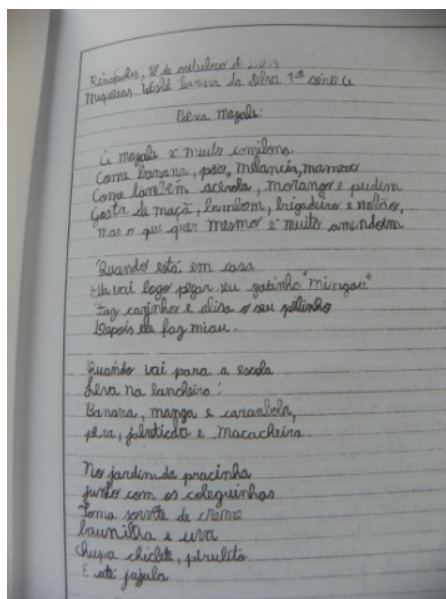 Rinópolis, 18 de outubro de
da Silva 1ª série
Magali
A magali é muito comilona
Come banana, pão, melancia, mamão
Come também acerola, morango e pudim
Gosta de maçã, bombom, brigadeiro e melão,
mas o que quer mesmo é muito amendoim
Quando está em casa
Ela vai logo pegar seu gatinho "mingau"
Faz carinho e alisa o seu pelinho
Depois ele faz miau.
Quando vai para a escola
Leva na lancheira:
Banana, manga e carambola,
pera, e macacheira
No jardim da pracinha
junto com os coleguinhas
Toma sorvete de creme
baunilha e uva
chupa chiclete, pirulito
E até jujuba